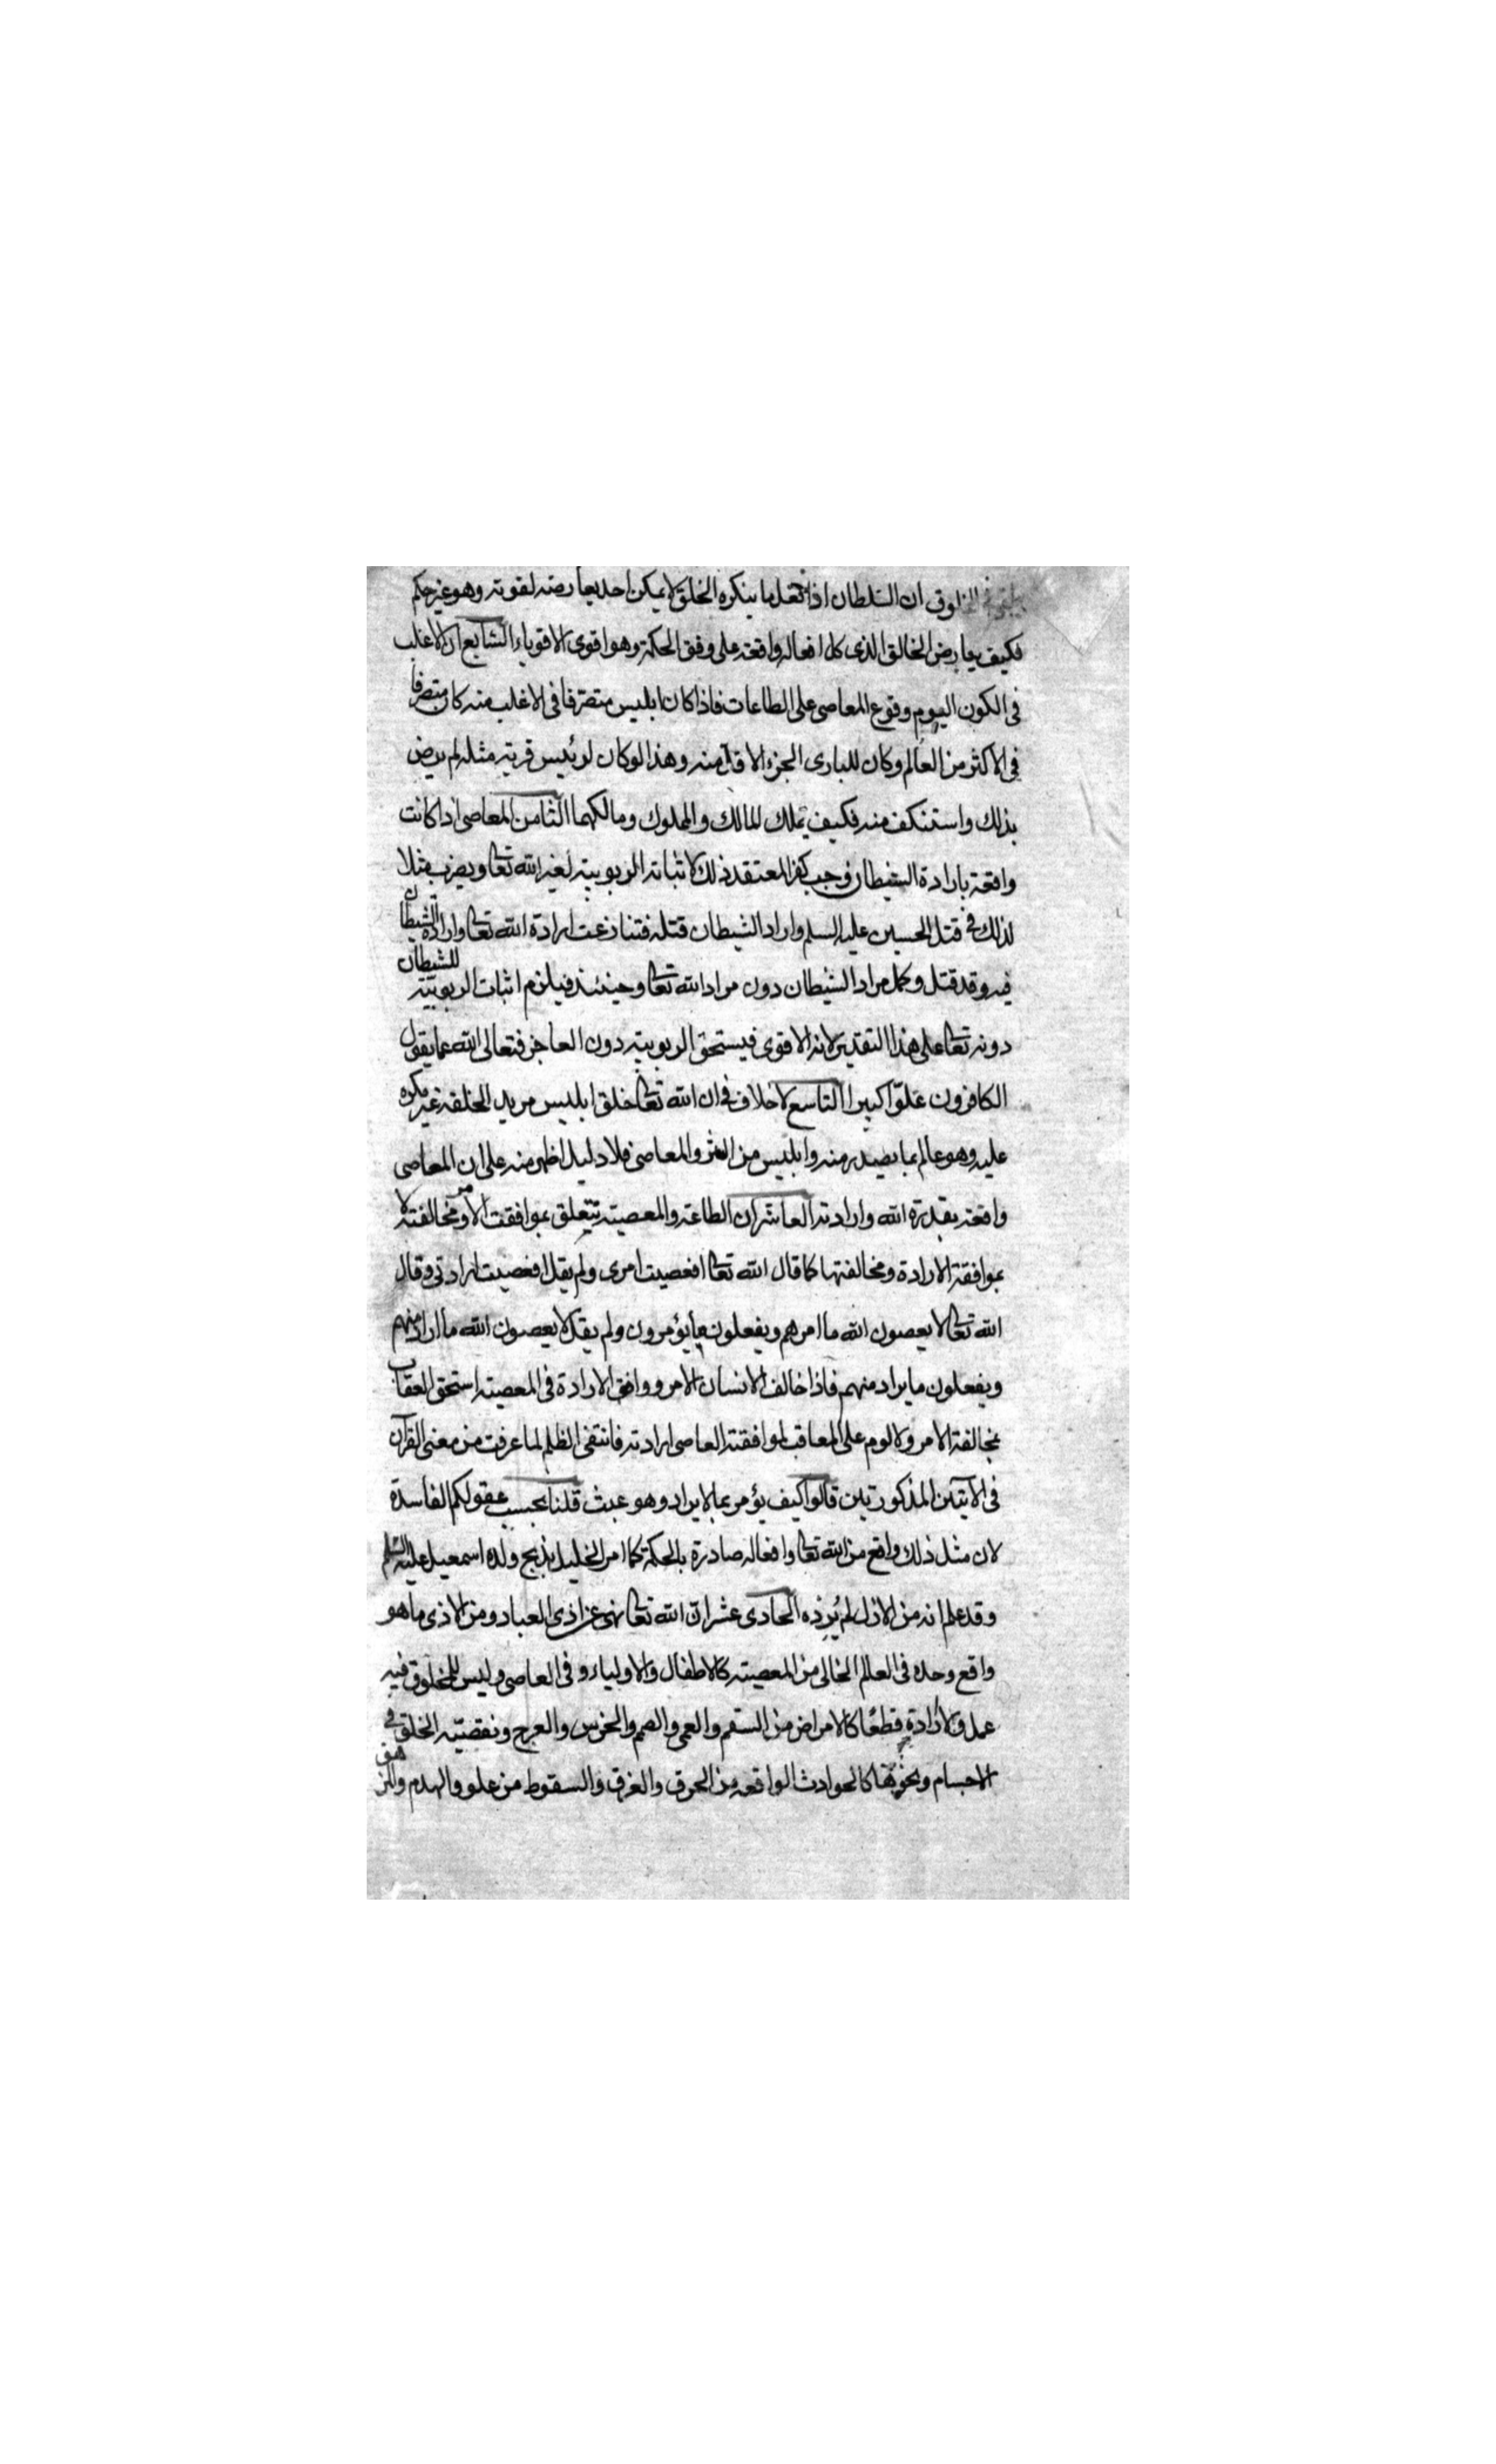 في المخلوق ان السلطان اذا فعل ما ينكره الخلق لا يمكن احد يعارضه لقوته وهو غير حكيم
فكيف يعارض الخالق الذى كل افعاله واقعة على وفق الحكمة وهو اقوى الاقوياء السابع ان الاغلب
فى الكون اليوم وقوع المعاصى على الطاعات فاذا كان ابليس متصرفا فى الاغلب منه كان متصرفا
فى الاكثر من العالم وكان للبارى الجزء الاقل منه وهذا لو كان لرئيس قرية مثله لم يرض
بذلك واستنكف منه فكيف تملك للمالك والمملوك ومالكهما الثامن المعاصى اذا كانت
واقعة بارادة الشيطان وجب كفر المعتقد ذلك لاثباته الربوبية لغير الله تعالى ويضرب مثلا
لذلك فى قتل الحسين عليه السلم واراد الشيطان قتله فتنازعت ارادة الله تعالى وارادة الشيطان
فيه وقد قتل وكمل مراد الشيطان دون مراد الله تعالى وحينئذ فيلزم اثبات الربوبية للشيطان
دونه تعالى على هذا التقدير لانه الاقوى فيستحق الربوبية دون العاجز فتعالى الله عما يقول
الكافرون علوّا كبيرا التاسع لا خلاف فى ان الله تعالى خلق ابليس مريد الخلقه غير مكره
عليه وهو عالم بما يصدر منه وابليس من الشر والمعاصى فلا دليل اظهر منه على ان المعاصى
واقعة بقدرة الله وارادته العاشر ان الطاعة والمعصية تتعلق بموافقت الامر ومخالفته لا
بموافقة الارادة ومخالفتها كما قال الله تعالى افعصيت امرى ولم يقل افعصيت ارادتى وقال
الله تعالى لا يعصون الله ما امرهم ويفعلون ما يؤمرون ولم يقل لا يعصون الله ما اراد منهم
ويفعلون ما يراد منهم فاذا خالف الانسان الامر ووافق الارادة فى المعصية استحق العقاب
بمخالفة الامر ولا لوم على المعاقب لموافقته العاصى ارادته فانتفى الظلم لما عرفت من معنى القرآن
فى الآيتين المذكورتين قالوا كيف يؤمر بما لا يراد وهو عبث قلنا بحسب عقولكم الفاسدة
لان مثل ذلك واقع من الله تعالى وافعاله صادرة بالحكمة كما امر الخليل بذبح ولده اسمعيل عليه السلم
وقد علم انه من الازل لم يُرِدْه الحادى عشر ان الله تعالى نهى عن اذى العباد ومن الاذى ما هو
واقع وحده فى العالم الخالى من المعصية كالاطفال والاولياء وفى العاصى وليس للمخلوق فيه
عمل ولا ارادة قطعًا كالامراض من السقم والعمى والصمم والخرس والعرج ونقصيّة الخلق فى
الاجسام ونحوها كالحوادث الواقعة من الحرق والغرق والسقوط من علو والهدم